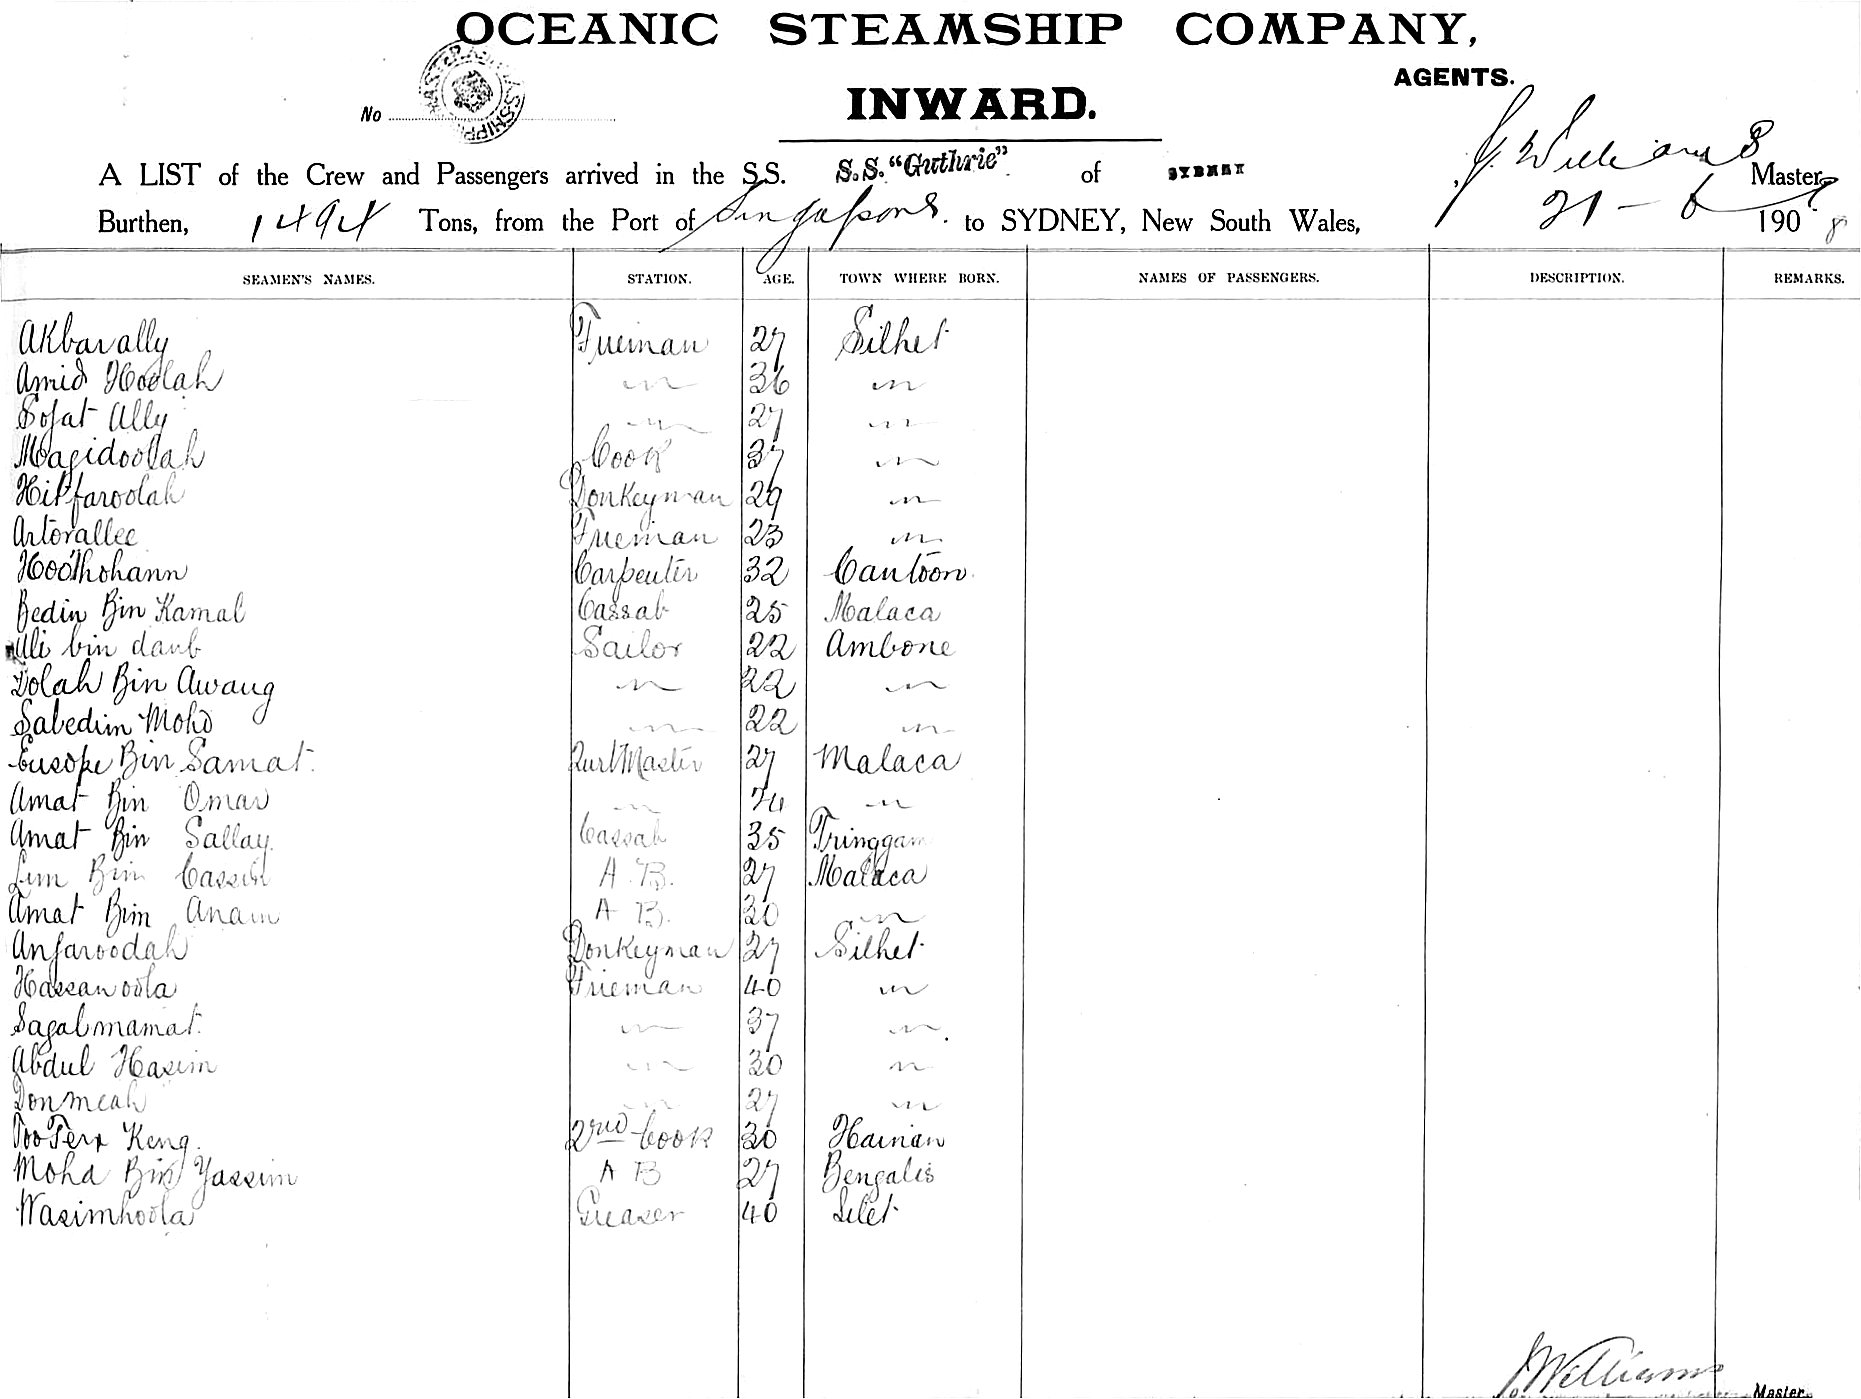 OCEANIC STEAMSHIP COMPANY,
AGENTS.
INWARD.
No
A LIST of the Crew and Passengers arrived in the S.S. S.S. "Guthrie" of SYDNEY J. Williams Master,
Burthen, 1494 Tons, from the Port of Singapore. to SYDNEY, New South Wales, 21 - 6 1908
SEAMEN'S NAMES. STATION. AGE. TOWN WHERE BORN. NAMES OF PASSENGERS. DESCRIPTION. REMARKS.
Akbarally Fireman 27 Silhet
Amid Hoolah " 36 "
Sofat Ally " 27 "
Magidoolah Cook 37 "
Hilfaroolah Donkeyman 29 "
Artorallee Fireman 23 "
Hoothohann Carpenter 32 Cantoon
Bedin Bin Kamal Cassab 25 Malaca
Ali bin daub Sailor 22 Ambone
Dolah Bin Awang " 22 "
Sabedim Mohd " 22 "
Eusope Bin Samat. QurtMaster 27 Malaca
Amat Bin Omar " "
Amat Bin Sallay. Cassab 35 Tringgam
Lim Bim Cassim A.B. 27 Malaca
Amat Bim Anam A B. 30 "
Anfaroodah Donkeyman 27 Silhet
Hassanoola Frieman 40 "
Sagalmamat. " 37 "
Abdul Hasim " 30 "
Donmeah " 27 "
Keng. 2nd Cook 30 Hainan
Moha Bin Yassim A B 27 Bengalis
Wasimhoola Greaser 40 Silet
J Williams
Master.